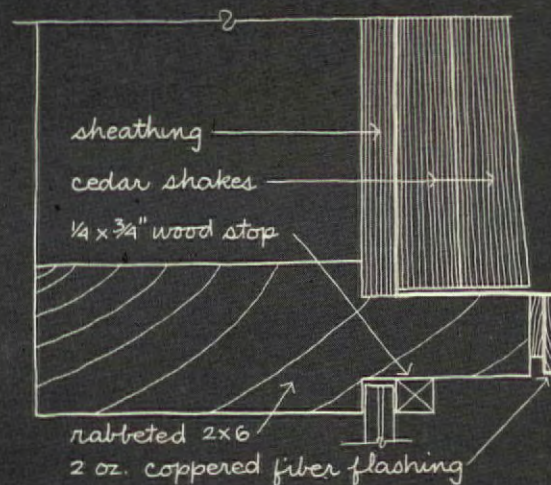 sheathing
cedar shakes
1/4 x 3/4" wood stop
rabbeted 2x6
2 oz. coppered fiber flashing